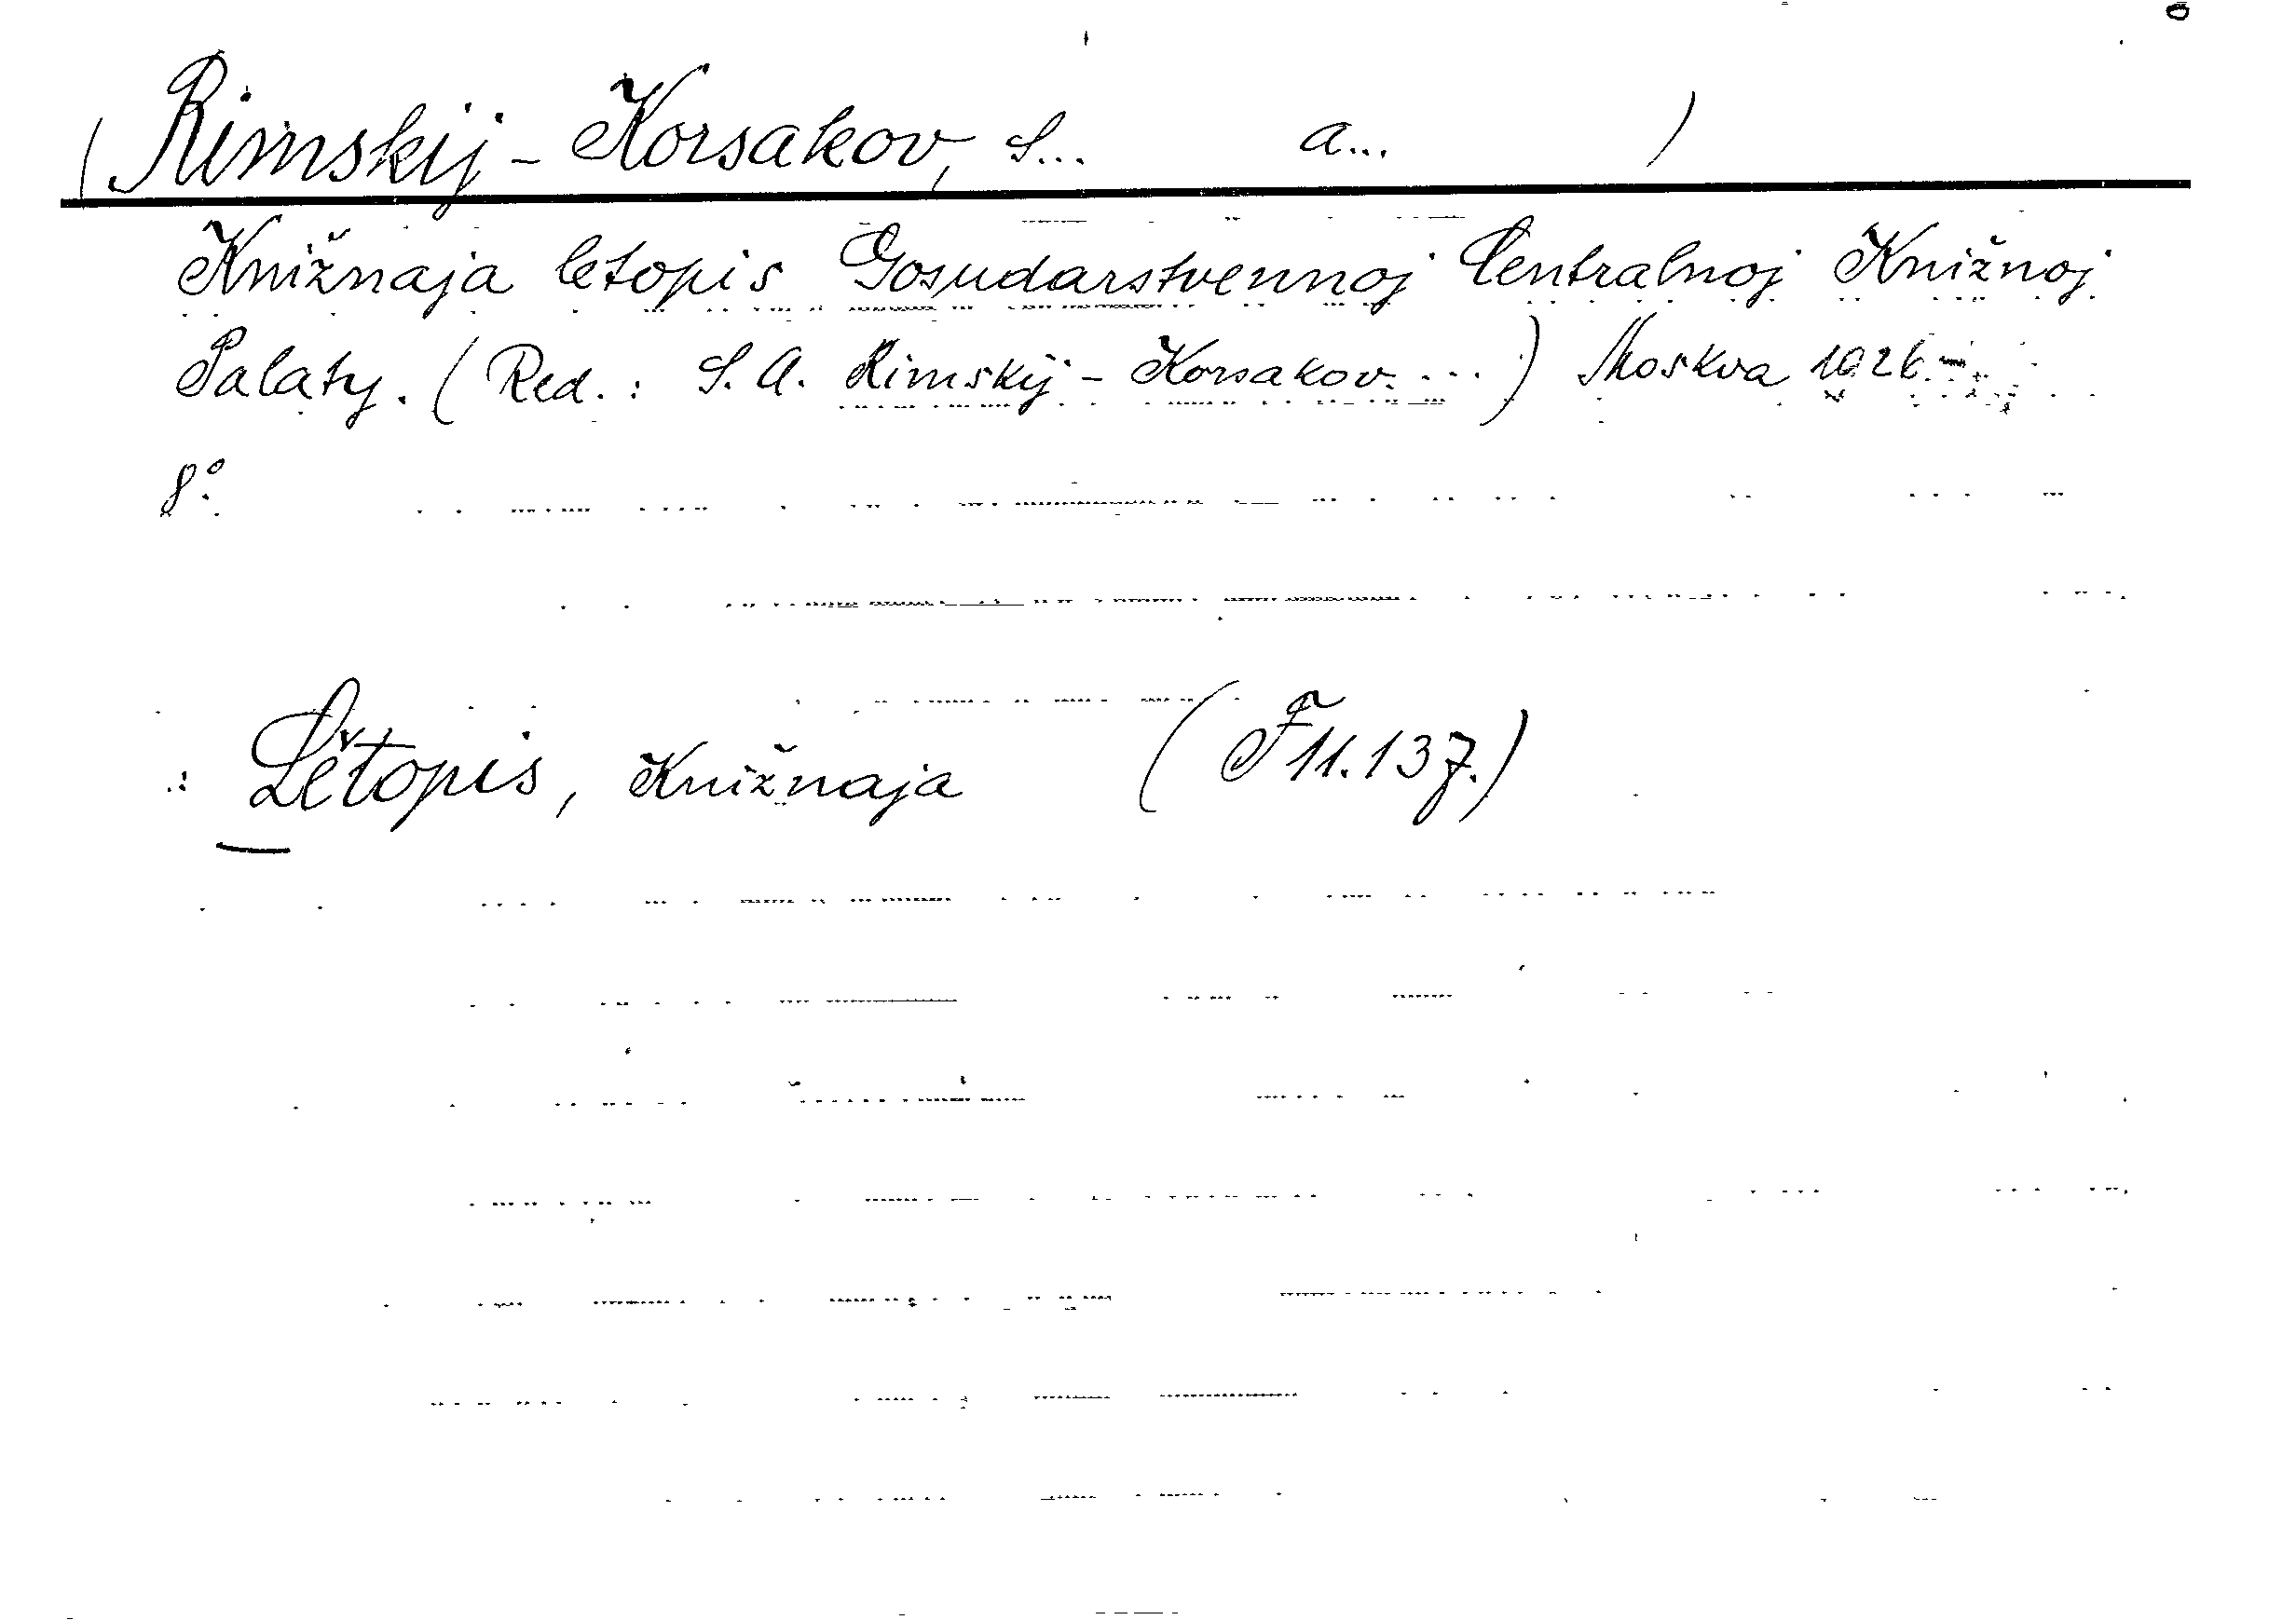 (Rimskij - Korsakov, S... A... )
Knižnaja letopis Gosudarstvennoj Centralnoj Knižnoj
Palaty. (Red.: S. A. Rimskij - Korsakov. ...) Moskva 1926 -.
8°.
Lětopis, Knižnaja (F 11.137.)